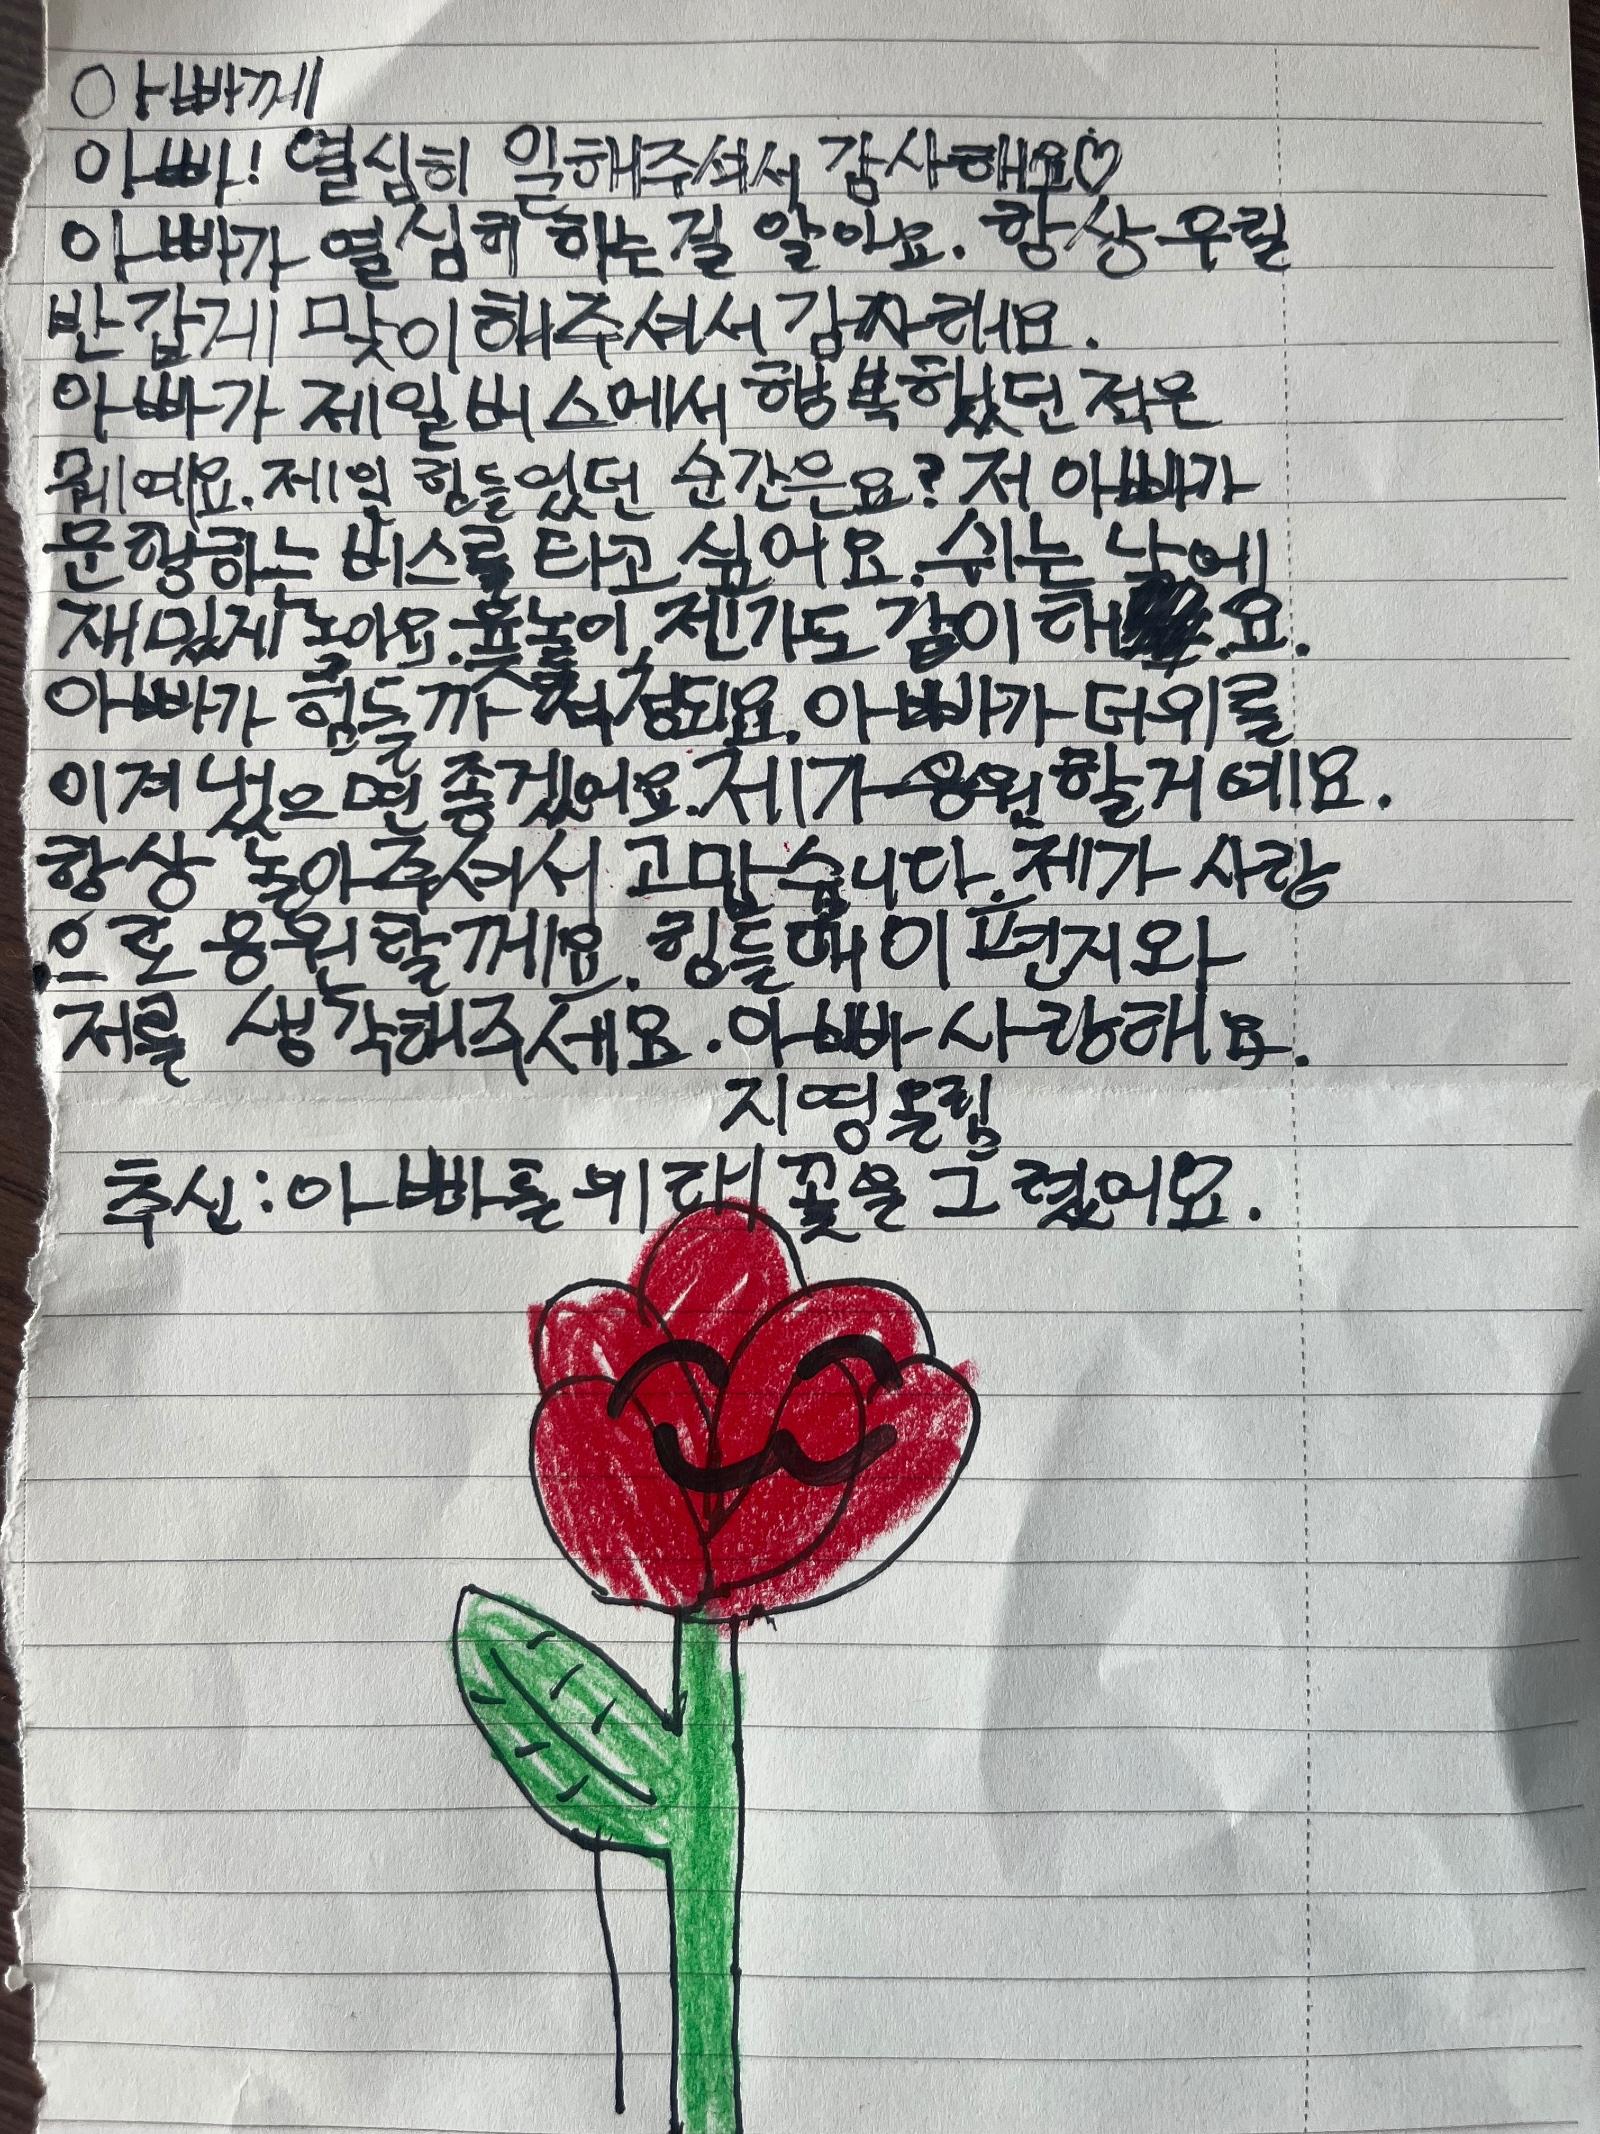 아빠께
아빠! 열심히 일해주셔서 감사해요♡
아빠가 열심히 하는질 알아요. 항상 우릴
반갑게 맞이해주셔서 감사해요.
아빠가 제일 버스에서 행복했던 적은
뭐예요. 제일 힘들었던 순간은요? 저 아빠가
운행하는 버스를 타고 싶어요. 쉬는 날에
재밌게 놀아요. 윷놀이 젠가도 같이 해요.
아빠가 힘들까 걱정되요. 아빠가 더위를
이겨냈으면 좋겠어요. 제가 응원할거예요.
항상 놀아주셔서 고맙습니다. 제가 사랑
으로 응원할께요. 힘들때 이 편지와
저를 생각해주세요. 아빠 사랑해요.
지영올림
추신: 아빠를 위해 꽃을 그렸어요.